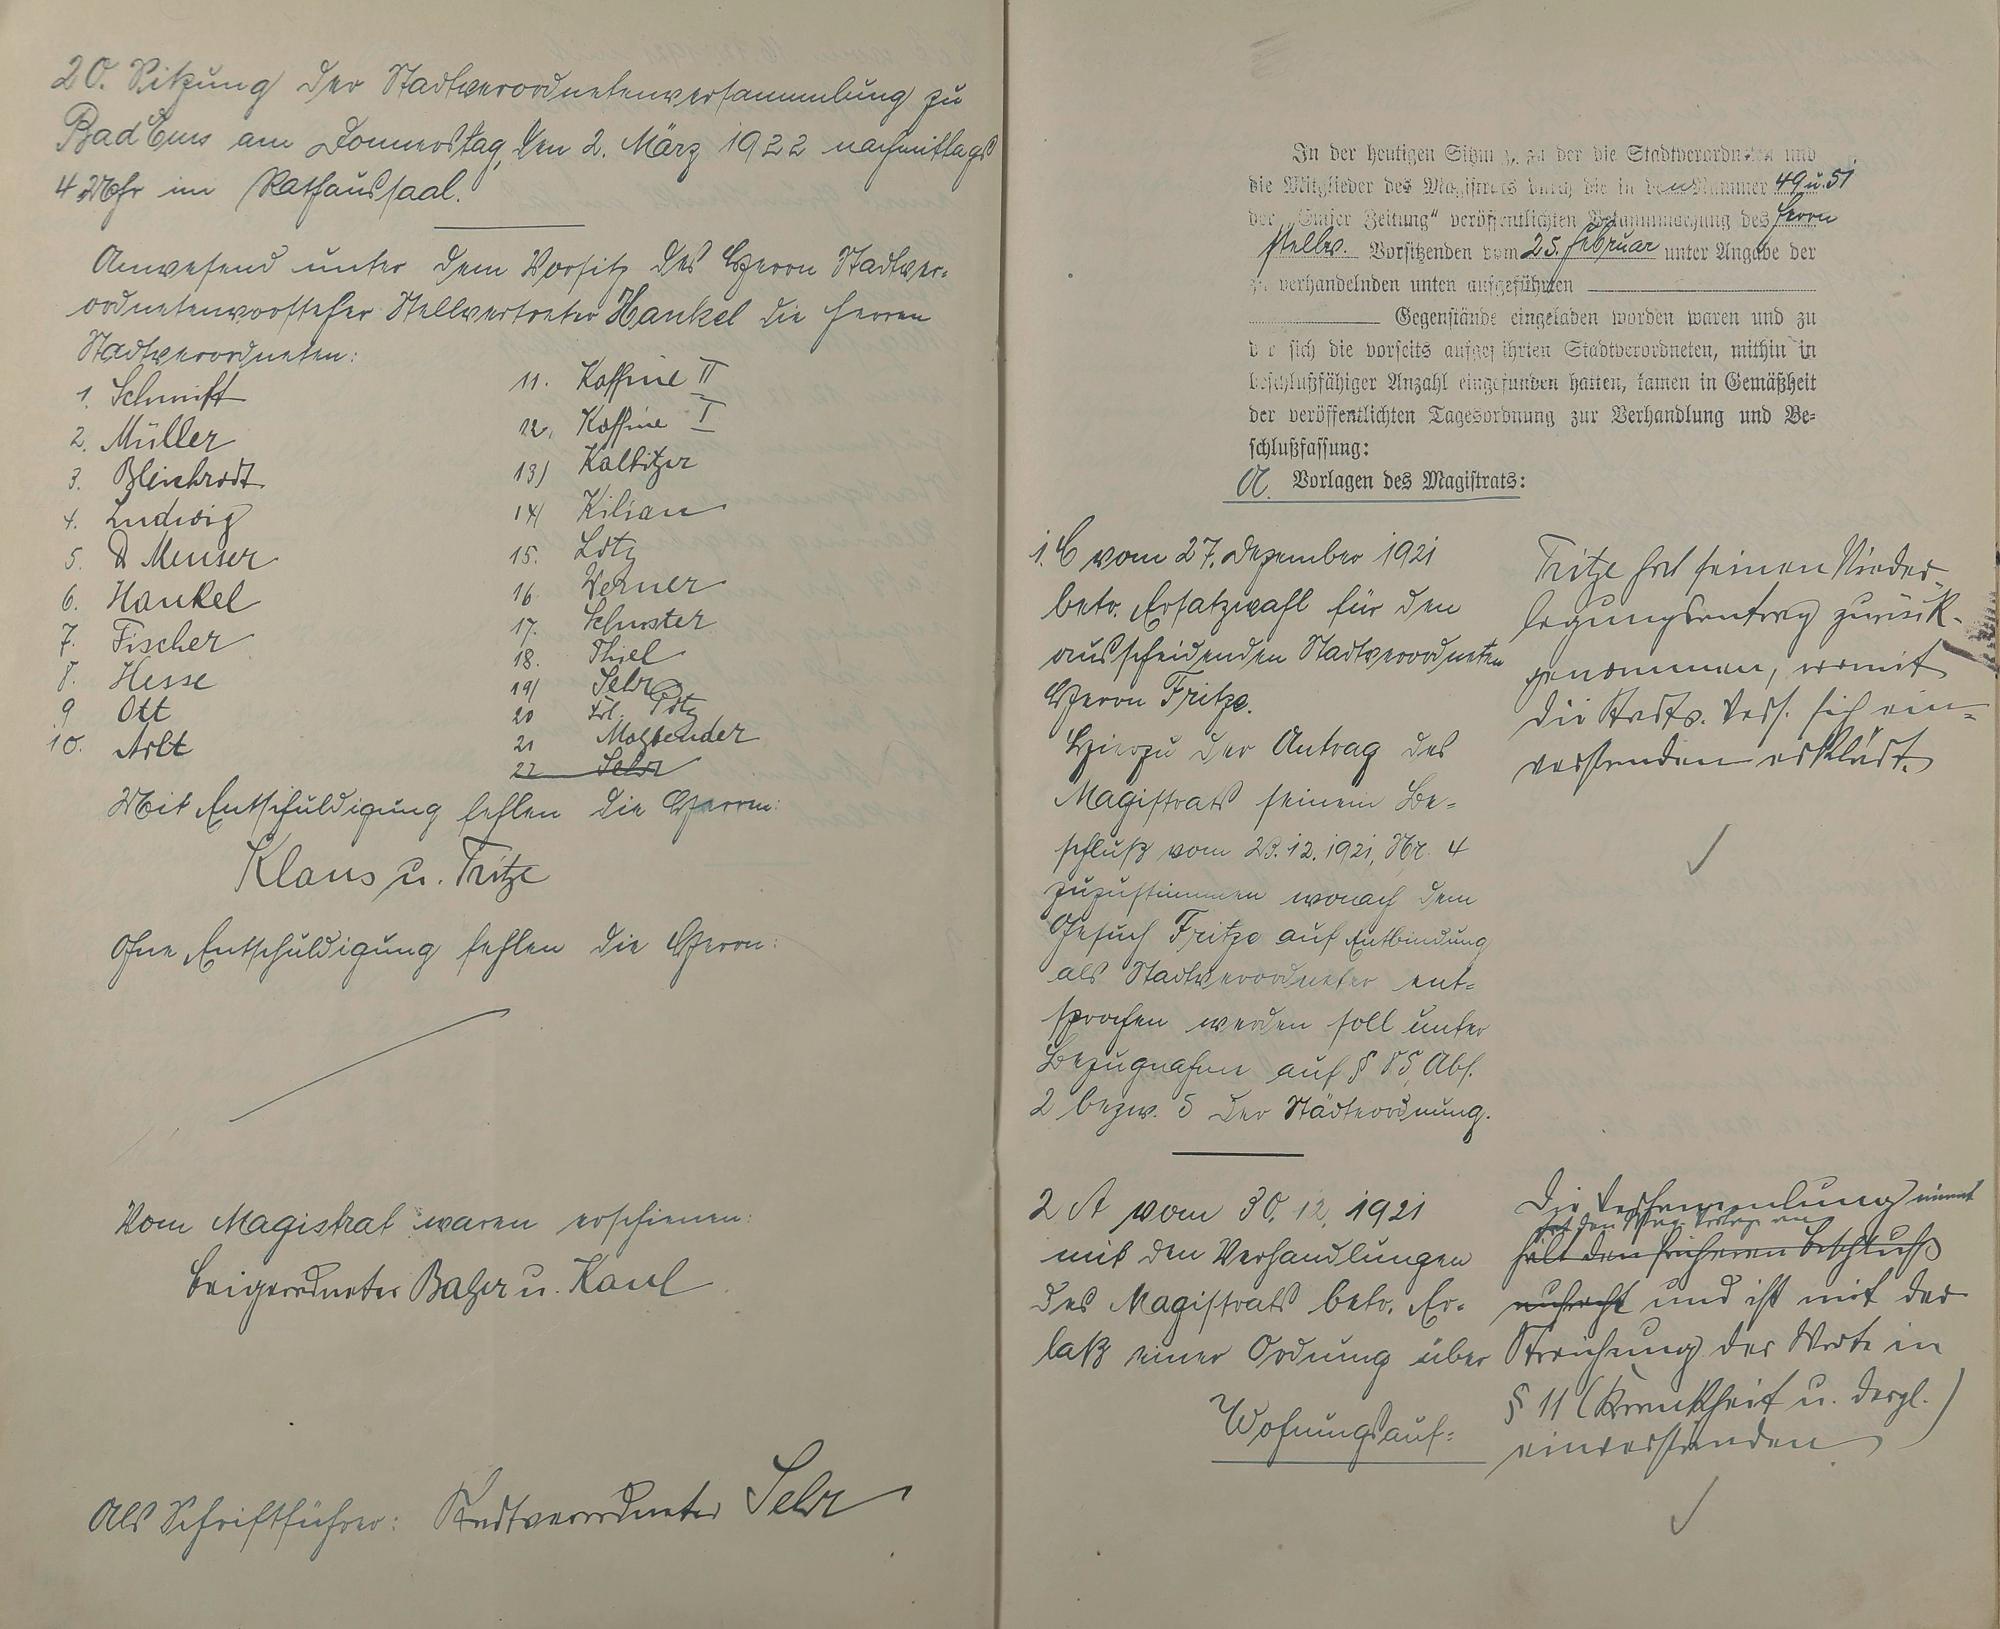 20. Sitzung der Stadtverordnetenversammlung zu
Bad Ems am Donnerstag, den 2. März 1922 nachmittags
4 Uhr im Rathaussaal.
Anwesend unter dem Vorsitz des Herrn Stadtver-
ordnetenvorsteher Stellvertreter Hankel die Herren
Stadtverordneten:
1. Schmitt
2. Müller
3. Bleichrodt
4. Ludwig
5. D Meuser
6. Hankel
7. Fischer
8. Hesse
9 Ott
10. Arlt
11. Kaffine II
12. Kaffine I
13) Kalbitzer
14) Kilian
15. Lotz
16 Werner
17. Schuster
18. Thiel
19) Sehr
20 Frl. Lotz
21 Malzbender
22 Sehr
Mit Entschuldigung fehlen die Herren:
Klaus u. Fritze
Ohne Entschuldigung fehlen die Herrn:
Vom Magistrat waren erschienen:
Beigeordneter Balzer u. Kaul
Als Schriftführer: Stadtverordneter Sehr
In der heutigen Sitzung, zu der die Stadtverordneten und
die Mitglieder des Magistrats durch die in den Nummer 49 u. 51
der „Emser Zeitung“ veröffentlichten Bekanntmachung des Herrn
stellv. Vorsitzenden vom 25. Februar unter Angabe der
zu verhandelnden unten aufgeführten
Gegenstände eingeladen worden waren und zu
der sich die vorseits aufgeführten Stadtverordneten, mithin in
beschlußfähiger Anzahl eingefunden hatten, kamen in Gemäßheit
der veröffentlichten Tagesordnung zur Verhandlung und Be-
schlußfassung:
A. Vorlagen des Magistrats:
1. C vom 27. Dezember 1921
betr. Ersatzwahl für den
ausscheidenden Stadtverordneten
Herrn Fritze.
Hierzu der Antrag des
Magistrats seinem Be-
schluß vom 23.12.1921, Nr. 4
zuzustimmen wonach dem
Gesuch Fritze auf Entbindung
als Stadtverordneter ent-
sprochen werden soll unter
Bezugnahme auf § 85, Abs.
2 bezw. 5 der Städteordnung.
Fritze hat seinen Nieder-
legungsantrag zurück-
genommen, womit
die Stadtv. Vers. sich ein-
verstanden erklärt.
2 A vom 30.12.1921
mit den Verhandlungen
des Magistrats betr. Er-
laß einer Ordnung über
Wohnungsauf-
Die Versammlung nimmt
den Mag. Vorlage an
hält den früheren Beschluß
aufrecht und ist mit der
Streichung der Worte in
§ 11 (Krankheit u. dergl.)
einverstanden